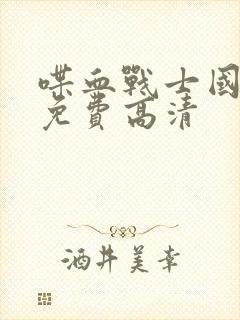 喋血戰士國
免費高清
酒井美幸